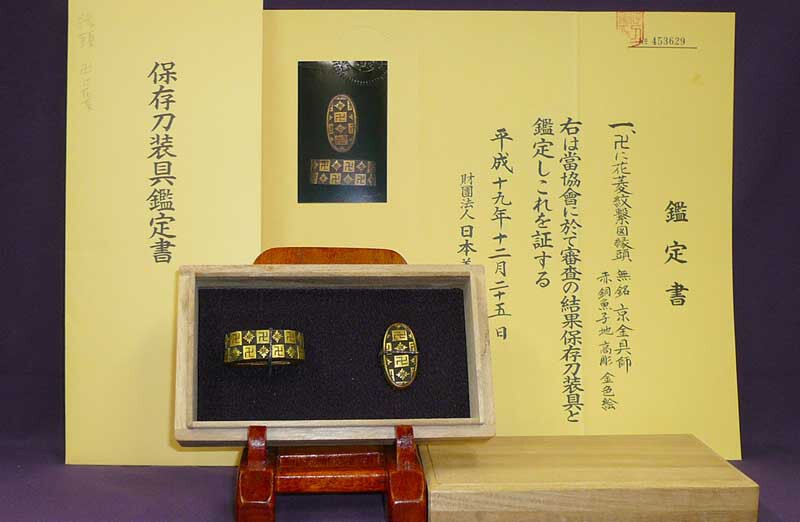 № 453629
鑑定書
一、卍に花菱紋繋図縁頭
無銘 京金具師
赤銅魚子地 高彫 金色絵
右は當協會に於て審査の結果保存刀装具と
鑑定しこれを証する
平成十九年十二月二十五日
財團法人日本
保存刀装具鑑定書
縁頭